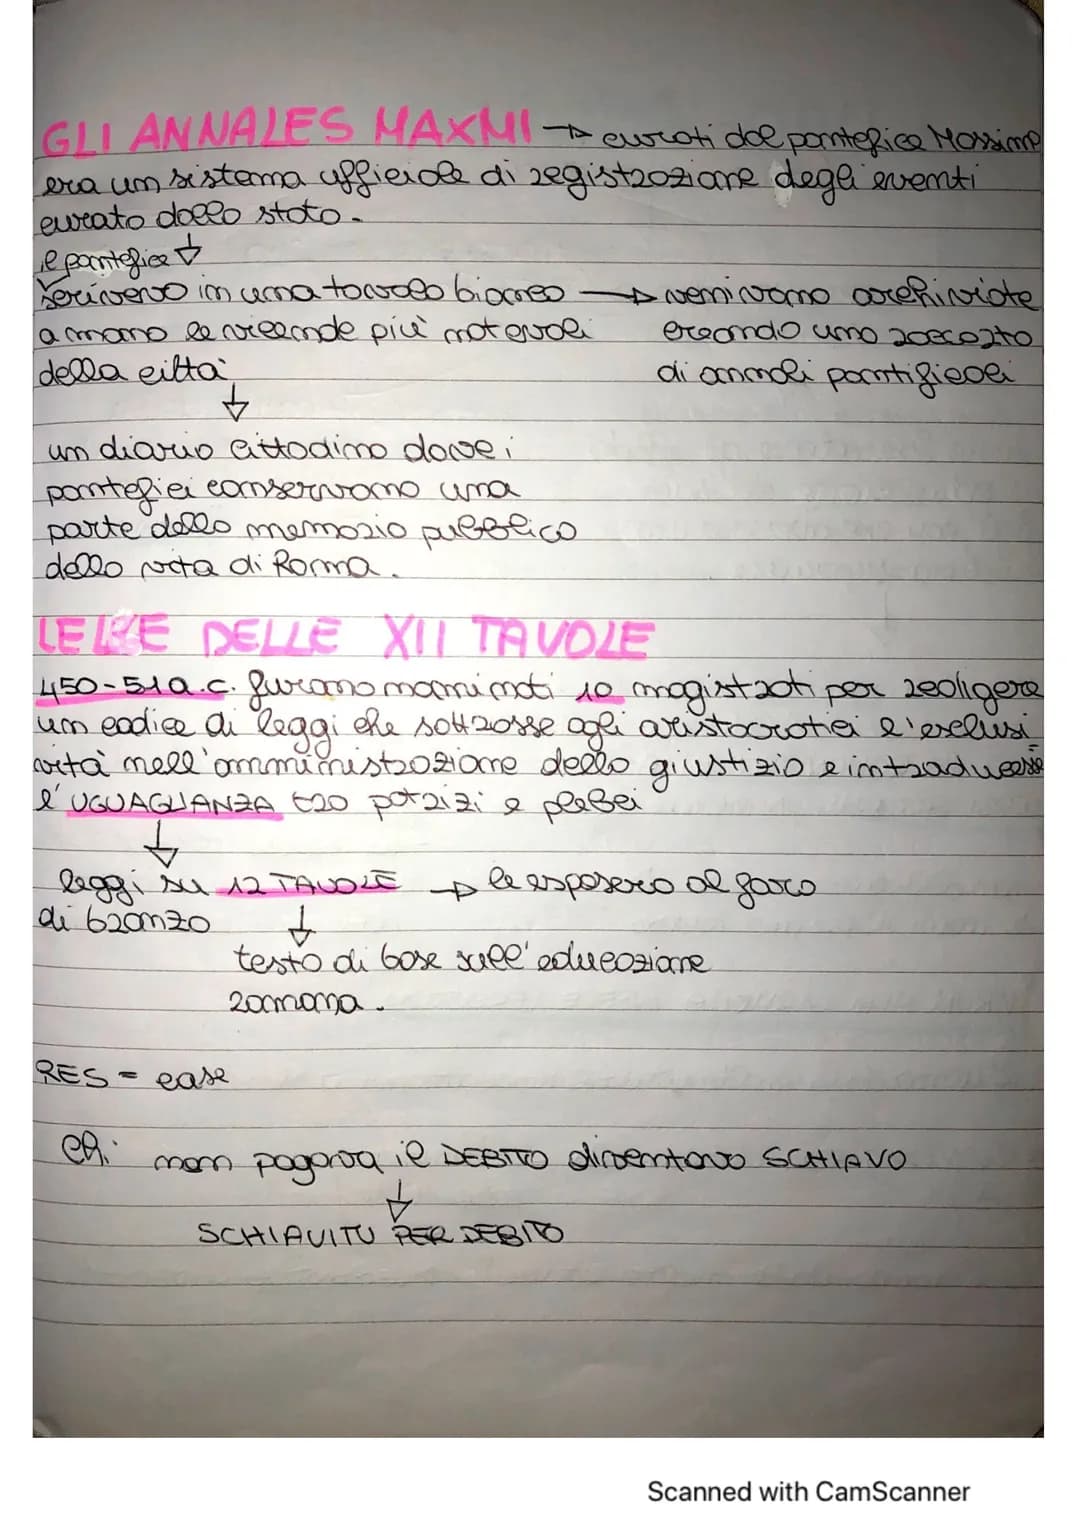 GLI ANNALES MAXMI → curati dal pontefice Massimo
era un sistema ufficiale di registrazione degli eventi
curato dallo stato.
il pontefice ↓
scriveva in una tavola bianca → venivano archiviate
a mano le vicende più notevoli creando una raccolta
della città di annali pontificali
↓
un diario cittadino dove i
pontefici conservavano una
parte della memoria pubblica
della vita di Roma.
LE DELLE XII TAVOLE
450-51 a.c. furono nominati 10 magistrati per redigere
un codice di leggi che sottrasse agli aristocratici l'esclusi
vità nell'amministrazione della giustizia e introducesse
l'UGUAGLIANZA tra patrizi e plebei
↓
leggi su 12 TAVOLE → le esposero al foro
di bronzo ↓
testo di base sull'educazione
romana.
RES = case
chi non pagava il DEBITO diventava SCHIAVO
↓
SCHIAVITU PER DEBITO
Scanned with CamScanner